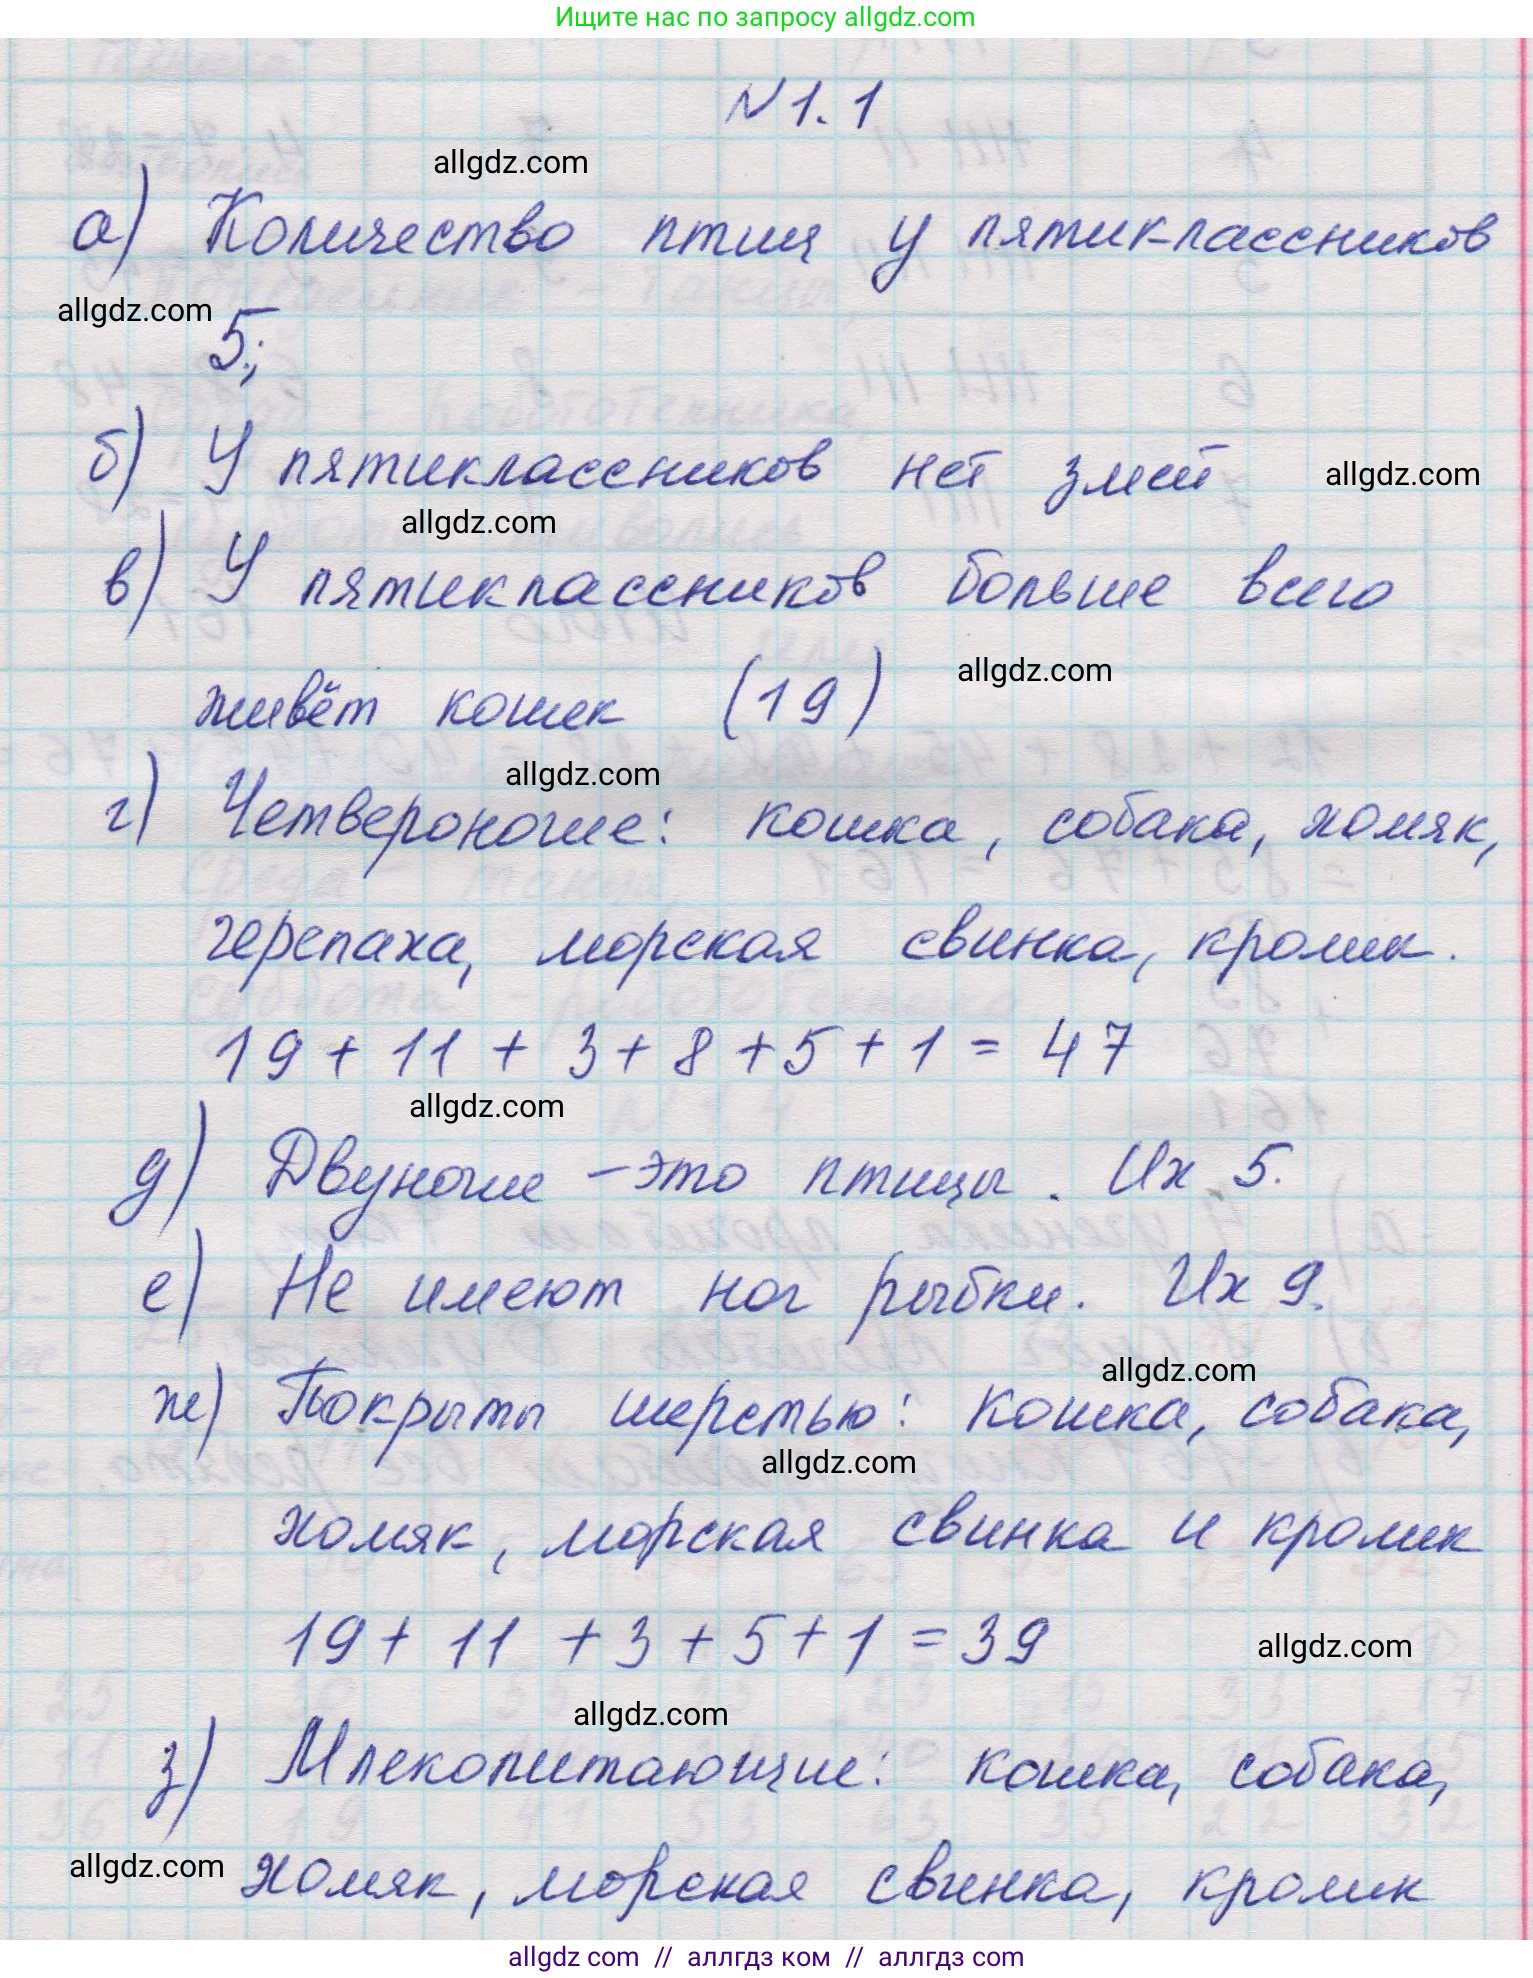 Ищите нас по запросу allgdz.com
N 1.1
allgdz.com
а) Количество птиц у пятиклассников
allgdz.com
5;
б) У пятиклассников нет змей
allgdz.com
allgdz.com
в) У пятиклассников больше всего
живёт кошек (19)
allgdz.com
allgdz.com
г) Четвероногие: кошка, собака, хомяк,
черепаха, морская свинка, кролик.
19 + 11 + 3 + 8 + 5 + 1 = 47
allgdz.com
д) Двуногие – это птицы. Их 5.
е) Не имеют ног рыбки. Их 9.
allgdz.com
ж) Покрыты шерстью: кошка, собака,
allgdz.com
хомяк, морская свинка и кролик
19 + 11 + 3 + 5 + 1 = 39
allgdz.com
allgdz.com
з) Млекопитающие: кошка, собака,
allgdz.com
хомяк, морская свинка, кролик
allgdz com // аллгдз ком // аллгдз com